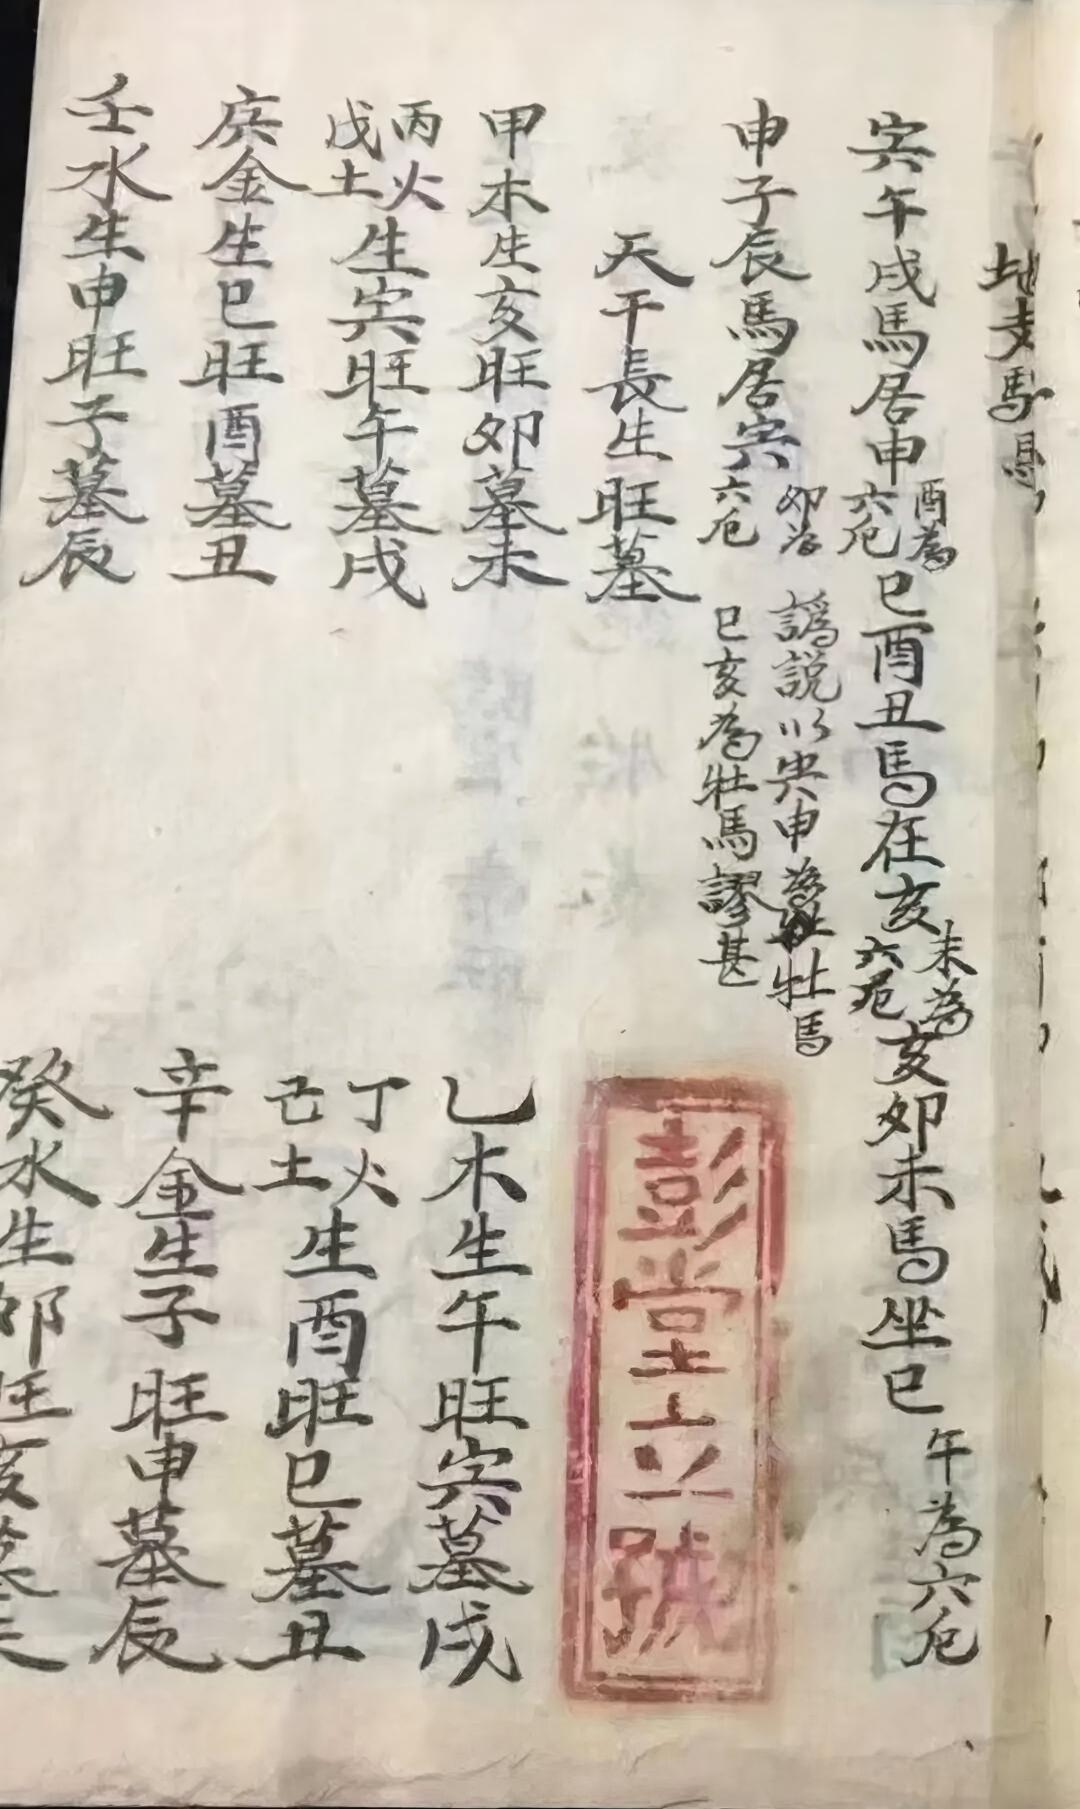 地支馬
寅午戌馬居申
酉為
六厄
巳酉丑馬在亥
未為
六厄
亥卯未馬坐巳
午為六厄
申子辰馬居寅
卯為
六厄
譌説以寅申為牡馬
巳亥為牡馬謬甚
天干長生旺墓
彭堂立號
甲木生亥旺卯墓未
乙木生午旺寅墓戌
丙火
戊土
生寅旺午墓戌
丁火
己土
生酉旺巳墓丑
庚金生巳旺酉墓丑
辛金生子旺申墓辰
壬水生申旺子墓辰
癸水生卯旺亥墓未